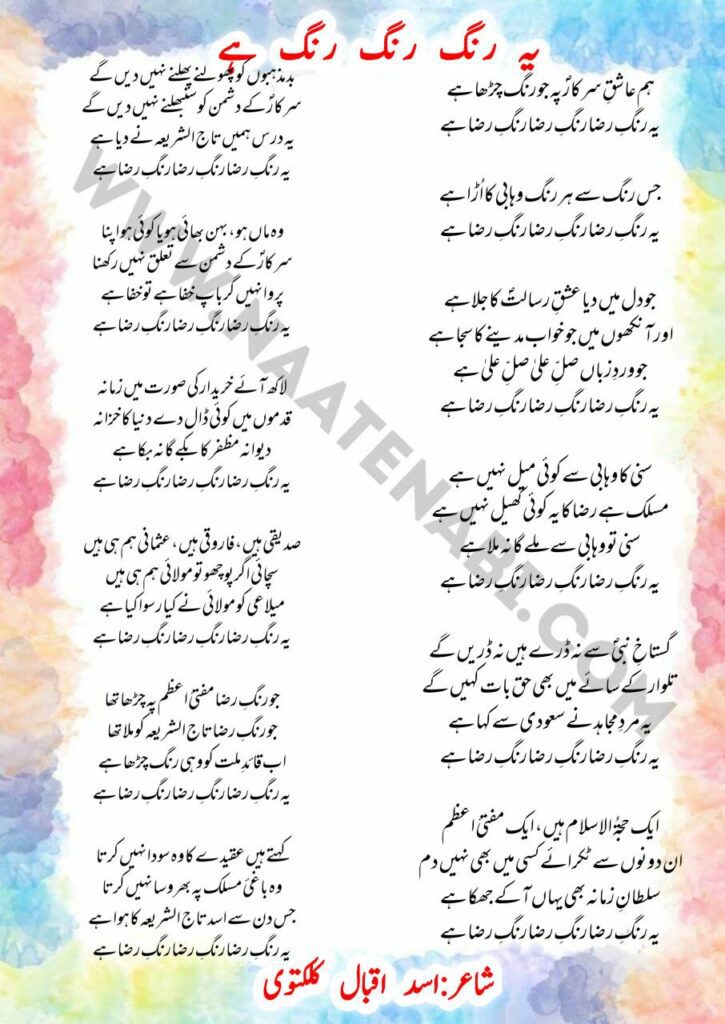 یہ رنگ رنگ رنگ ہے
ہم عاشقِ سرکارؐ پہ جو رنگ چڑھا ہے
یہ رنگِ رضا رنگِ رضا رنگِ رضا ہے
جس رنگ سے ہر رنگ وہابی کا اُڑا ہے
یہ رنگِ رضا رنگِ رضا رنگِ رضا ہے
جو دل میں دیا عشقِ رسالتؐ کا جلا ہے
اور آنکھوں میں جو خواب مدینے کا سجا ہے
جو وردِ زباں صلِّ علیٰ صلِّ علیٰ ہے
یہ رنگِ رضا رنگِ رضا رنگِ رضا ہے
سنی کا وہابی سے کوئی میل نہیں ہے
مسلک ہے رضا کا یہ کوئی کھیل نہیں ہے
سنی تو وہابی سے ملے گا نہ ملا ہے
یہ رنگِ رضا رنگِ رضا رنگِ رضا ہے
گستاخِ نبیؐ سے نہ ڈرے ہیں نہ ڈریں گے
تلوار کے سائے میں بھی حق بات کہیں گے
یہ مردِ مجاہد نے سعودی سے کہا ہے
یہ رنگِ رضا رنگِ رضا رنگِ رضا ہے
ایک حجۃ الاسلام ہیں، ایک مفتیٔ اعظم
ان دونوں سے ٹکرائے کسی میں بھی نہیں دم
سلطانِ زمانہ بھی یہاں آ کے جھکا ہے
یہ رنگِ رضا رنگِ رضا رنگِ رضا ہے
بدمذہبوں کو پھولنے پھلنے نہیں دیں گے
سرکارؐ کے دشمن کو سنبھلنے نہیں دیں گے
یہ درس ہمیں تاج الشریعہ نے دیا ہے
یہ رنگِ رضا رنگِ رضا رنگِ رضا ہے
وہ ماں ہو، بہن بھائی ہو یا کوئی ہو اپنا
سرکارؐ کے دشمن سے تعلق نہیں رکھنا
پروا نہیں گر باپ خفا ہے تو خفا ہے
یہ رنگِ رضا رنگِ رضا رنگِ رضا ہے
لاکھ آئے خریدار کی صورت میں زمانہ
قدموں میں کوئی ڈال دے دنیا کا خزانہ
دیوانہ مظفر کا بکے گا نہ بکا ہے
یہ رنگِ رضا رنگِ رضا رنگِ رضا ہے
صدیقی ہیں، فاروقی ہیں، عثمانی ہم ہی ہیں
سچائی اگر پوچھو تو مولائی ہم ہی ہیں
میلاعی کو مولائی نے کیا رسوا کیا ہے
یہ رنگِ رضا رنگِ رضا رنگِ رضا ہے
جو رنگِ رضا مفتیٔ اعظم پہ چڑھا تھا
جو رنگِ رضا تاج الشریعہ کو ملا تھا
اب قائدِ ملت کو وہی رنگ چڑھا ہے
یہ رنگِ رضا رنگِ رضا رنگِ رضا ہے
کہتے ہیں عقیدے کا وہ سودا نہیں کرتا
وہ باغیٔ مسلک پہ بھروسا نہیں کرتا
جس دن سے اسد تاج الشریعہ کا ہوا ہے
یہ رنگِ رضا رنگِ رضا رنگِ رضا ہے
شاعر: اسد اقبال کلکتوی
WWW.NAATENABI.COM